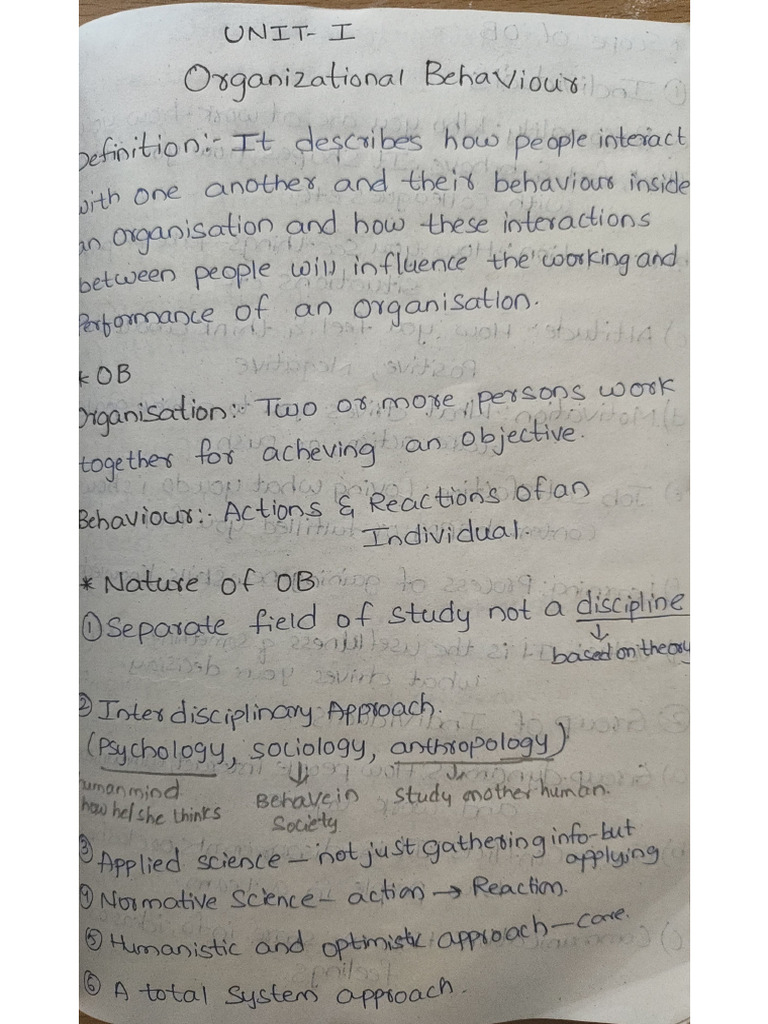 UNIT- I
Organizational Behaviour
Definition:- It describes how people interact
with one another and their behaviour inside
an organisation and how these interactions
between people will influence the working and
Performance of an organisation.
* OB
Organisation:- Two or more persons work
together for acheving an objective.
Behaviour:- Actions & Reactions of an
Individual.
* Nature of OB
① Separate field of study not a discipline
↓
based on theory
② Interdisciplinary Approach.
(Psychology, sociology, anthropology)
humanmind Behave in study another human.
how he/she thinks Society
③ Applied science – not just gathering info-but
applying
④ Normative Science – action → Reaction.
⑤ Humanistic and optimistic approach – care.
⑥ A total System approach.